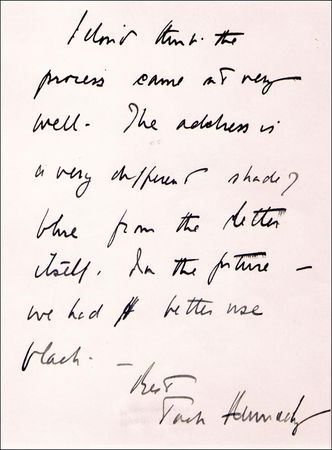 I don't think the
process came out very
well. The address is
a very different shade of
blue from the letter
itself. In the future —
we had better use
black. —
Best
Jack Kennedy